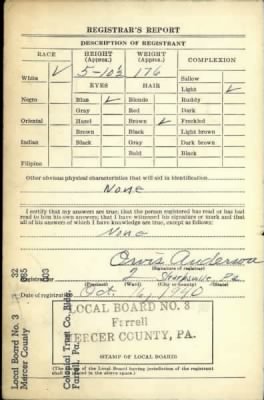 REGISTRAR'S REPORT
DESCRIPTION OF REGISTRANT
RACE
HEIGHT (Approx.)
WEIGHT (Approx.)
COMPLEXION
White ✓
5-10½
176
Sallow
EYES
HAIR
Light ✓
Negro
Blue ✓
Blonde
Ruddy
Gray
Red
Dark
Oriental
Hazel
Brown ✓
Freckled
Brown
Black
Light brown
Indian
Black
Gray
Dark brown
Bald
Black
Filipino
Other obvious physical characteristics that will aid in identification
None
I certify that my answers are true; that the person registered has read or has had read to him his own answers; that I have witnessed his signature or mark and that all of his answers of which I have knowledge are true, except as follows:
None
Anderson
(Signature of registrar)
Registrar
2
Sharpsville, Pa.
(Precinct)
(Ward)
(City or county)
Date of registration Oct. 16, 1940
LOCAL BOARD NO. 3
Farrell
MERCER COUNTY, PA.
STAMP OF LOCAL BOARD
(The stamp of the Local Board having jurisdiction of the registrant shall be placed in the above space.)
Local Board No. 3 32
Mercer County 085
003
Colonial Trust Co. Bldg.
Farrell, Pa.